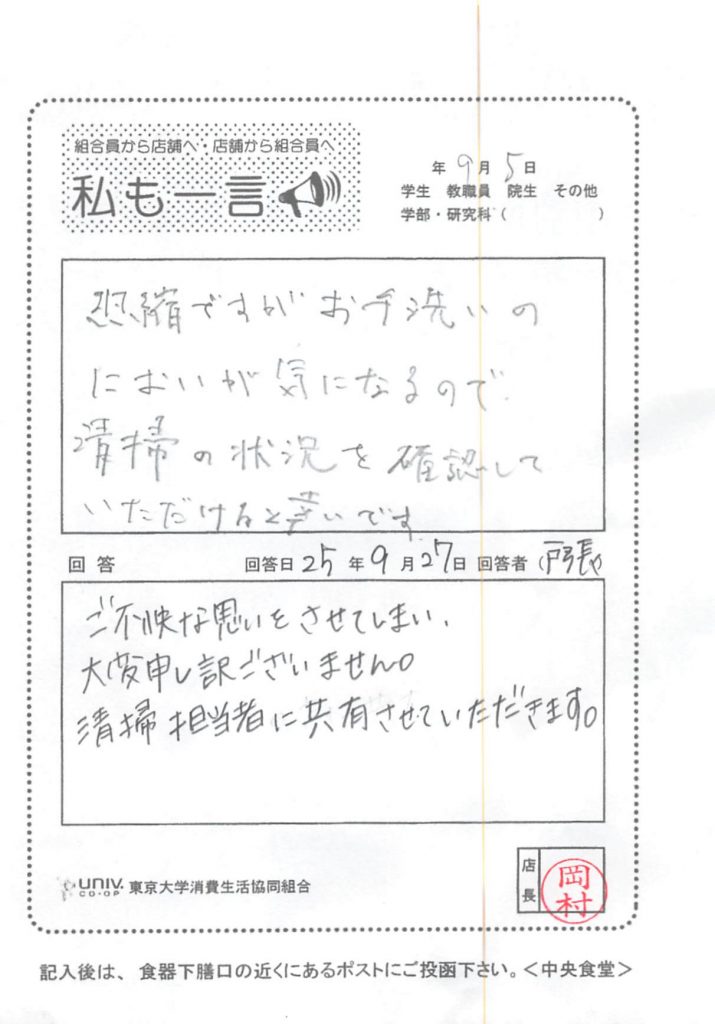 組合員から店舗へ・店舗から組合員へ
私も一言
年 9月 5日
学生 教職員 院生 その他
学部・研究科( )
恐縮ですがお手洗いの
においが気になるので、
清掃の状況を確認して
いただけると幸いです
回答 回答日 25年 9月 27日 回答者 (戸張)
ご不快な思いをさせてしまい、
大変申し訳ございません。
清掃担当者に共有させていただきます。
UNIV. CO-OP 東京大学消費生活協同組合
店長 岡村
記入後は、食器下膳口の近くにあるポストにご投函下さい。<中央食堂>